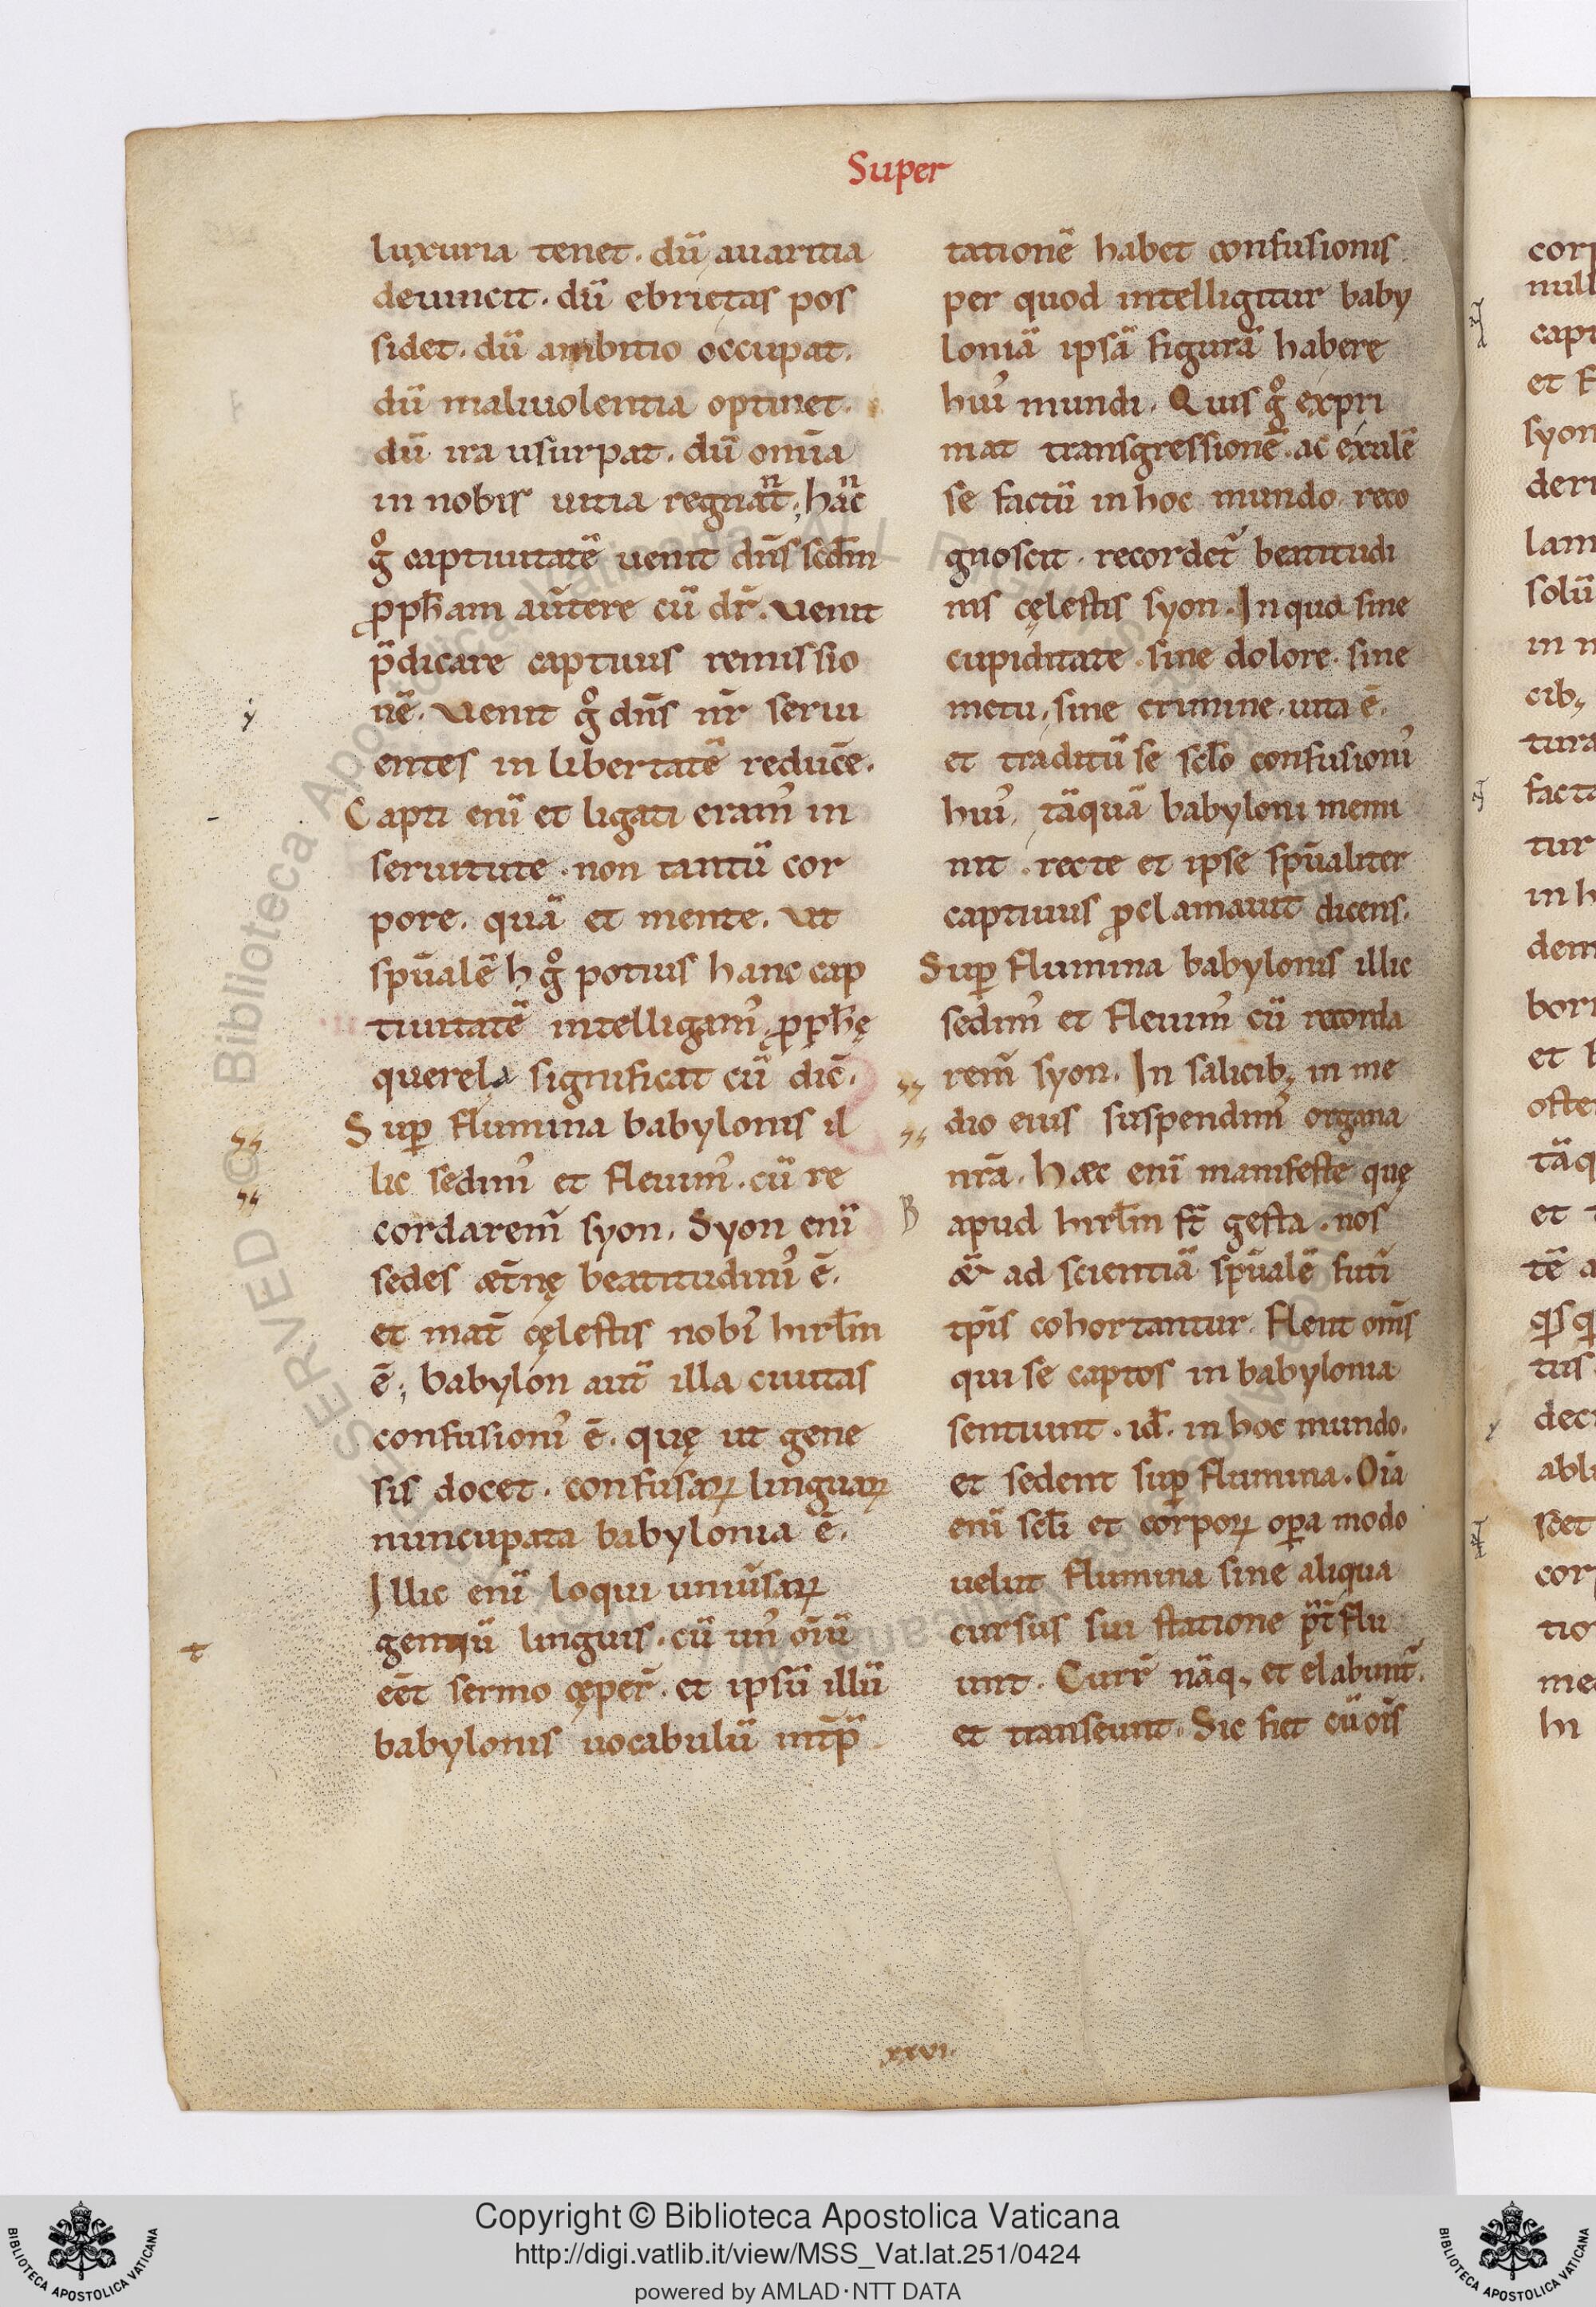 Super
luxuria tenet. dū auaritia
deuincit. dū ebrietas pos
sidet. dū ambitio occupat.
dū maliuolentia optinet.
dū ira usurpat. dū om̄ia
in nobis uitia regnāt; hāc
gͦ captiuitatē uenit dn̄s scdm̄
ꝓph̄am aūtere cū dr̄. Venit
p̄dicare captiuis remissio
nē. Venit gͦ dn̄s nr̄ serui
entes in libertatē reducē̄.
Capti enī et ligati eram᾽ in
seruitute. non tantū cor
pore. quā et mente. Vt
spūalē hͦ gͦ potius hanc cap
tiuitatē intelligam᾽. ꝓph̄ę
querela significat cū dic̄.
Suꝑ flumina babylonis il
lic sedim᾽ et fleuim᾽. cū re
cordarem᾽ syon. Syon enī
sedes æt̄nę beatitudini᾽ ē.
et mat̄ cęlestis nobi᾽ hirl̄m
ē; babylon aūt illa ciuitas
confusioni᾽ ē. quę ut gene
sis docet. confusaꝝ linguaꝝ
nuncupata babylonia ē.
Illic enī loqui uniūsaꝝ
gentiū linguis. cū un᾽ oīū
eēt sermo cęper̄. et ipsū illū
babylonis uocabulū int̄p̄
tationē habet confusionis
per quod intelligitur baby
loniā ipsā figurā habere
hui᾽ mundi. Quis gͦ expri
mat transgressionē. ac exulē
se factū in hoc mundo reco
gnoscit. recordet᾽ beatitudi
nis cęlestis syon. In qua sine
cupiditate. sine dolore. sine
metu. sine crimine. uita ē.
et traditū se scl̄o confusioni᾽
hui᾽. tāquā babyloni memi
nit. recte et ipse spūaliter
captiuus ꝓclamauit dicens.
Suꝑ flumina babylonis illic
sedim᾽ et fleuim᾽ cū recorda
rem᾽ syon. In salicib; in me
dio eius suspendim᾽ organa
nr̄a. Hæc enī manifeste quę
apud hirl̄m st̄ gesta. nos
ad scientiā spūalē futi᾽
tp̄is cohortantur. Flent om̄s
qui se captos in babylonia
sentiunt. id̄. in hoc mundo.
et sedent suꝑ flumina. Oīa
enī scl̄i et corpoꝝ oꝑa modo
uelut flumina sine aliqua
cursus sui statione p̄t̄flu
unt. Curr̄ nāq; et elabunt᾽.
et transeunt. Sic fiet cū oīs
xxvi.
Copyright © Biblioteca Apostolica Vaticana
http://digi.vatlib.it/view/MSS_Vat.lat.251/0424
powered by AMLAD·NTT DATA